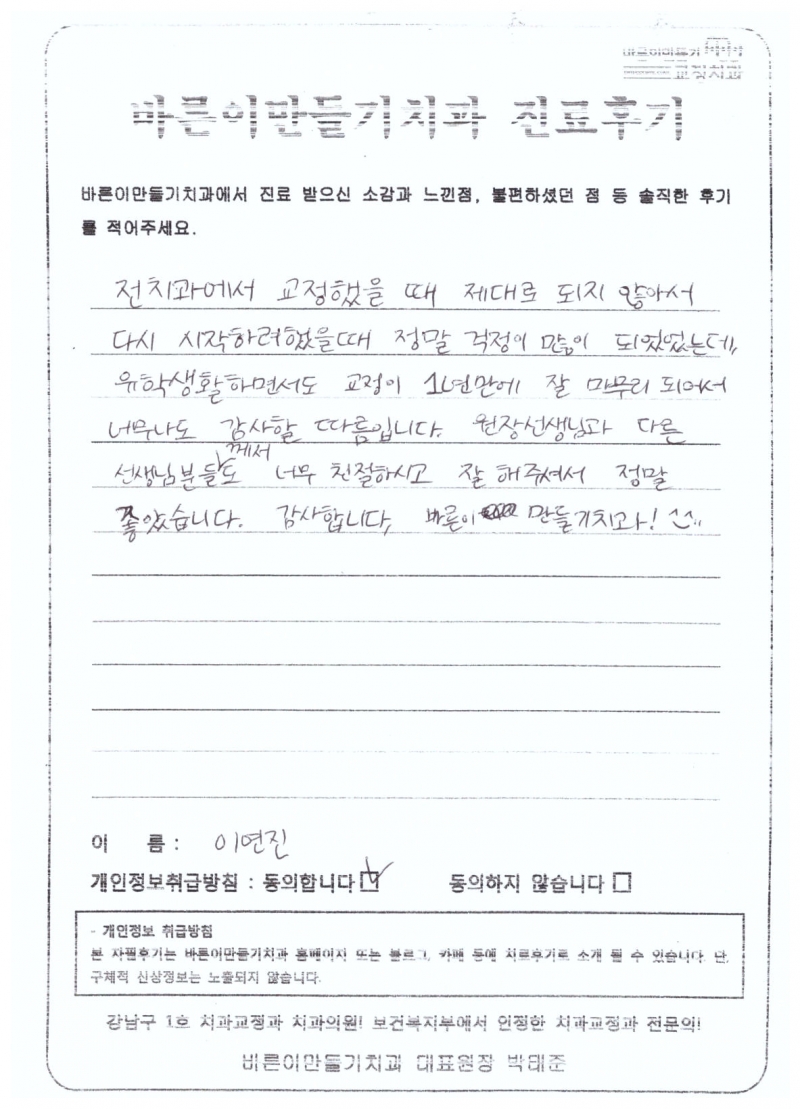 바른이만들기
교정치과
바른이만들기치과 진료후기
바른이만들기치과에서 진료 받으신 소감과 느낀점, 불편하셨던 점 등 솔직한 후기
를 적어주세요.
전치과에서 교정했을 때 제대로 되지 않아서
다시 시작하려했을때 정말 걱정이 많이 되었었는데,
유학생활하면서도 교정이 1년만에 잘 마무리 되어서
너무나도 감사할 따름입니다. 원장선생님과 다른
선생님분들께서도 너무 친절하시고 잘 해주셔서 정말
좋았습니다. 감사합니다, 바른이 만들기치과! ^^
이 름 : 이연진
개인정보취급방침 : 동의합니다 ☑ 동의하지 않습니다 □
- 개인정보 취급방침
본 자필후기는 바른이만들기치과 홈페이지 또는 블로그, 카페 등에 치료후기로 소개 될 수 있습니다. 단,
구체적 신상정보는 노출되지 않습니다.
강남구 1호 치과교정과 치과의원! 보건복지부에서 인정한 치과교정과 전문의!
바른이만들기치과 대표원장 박태준